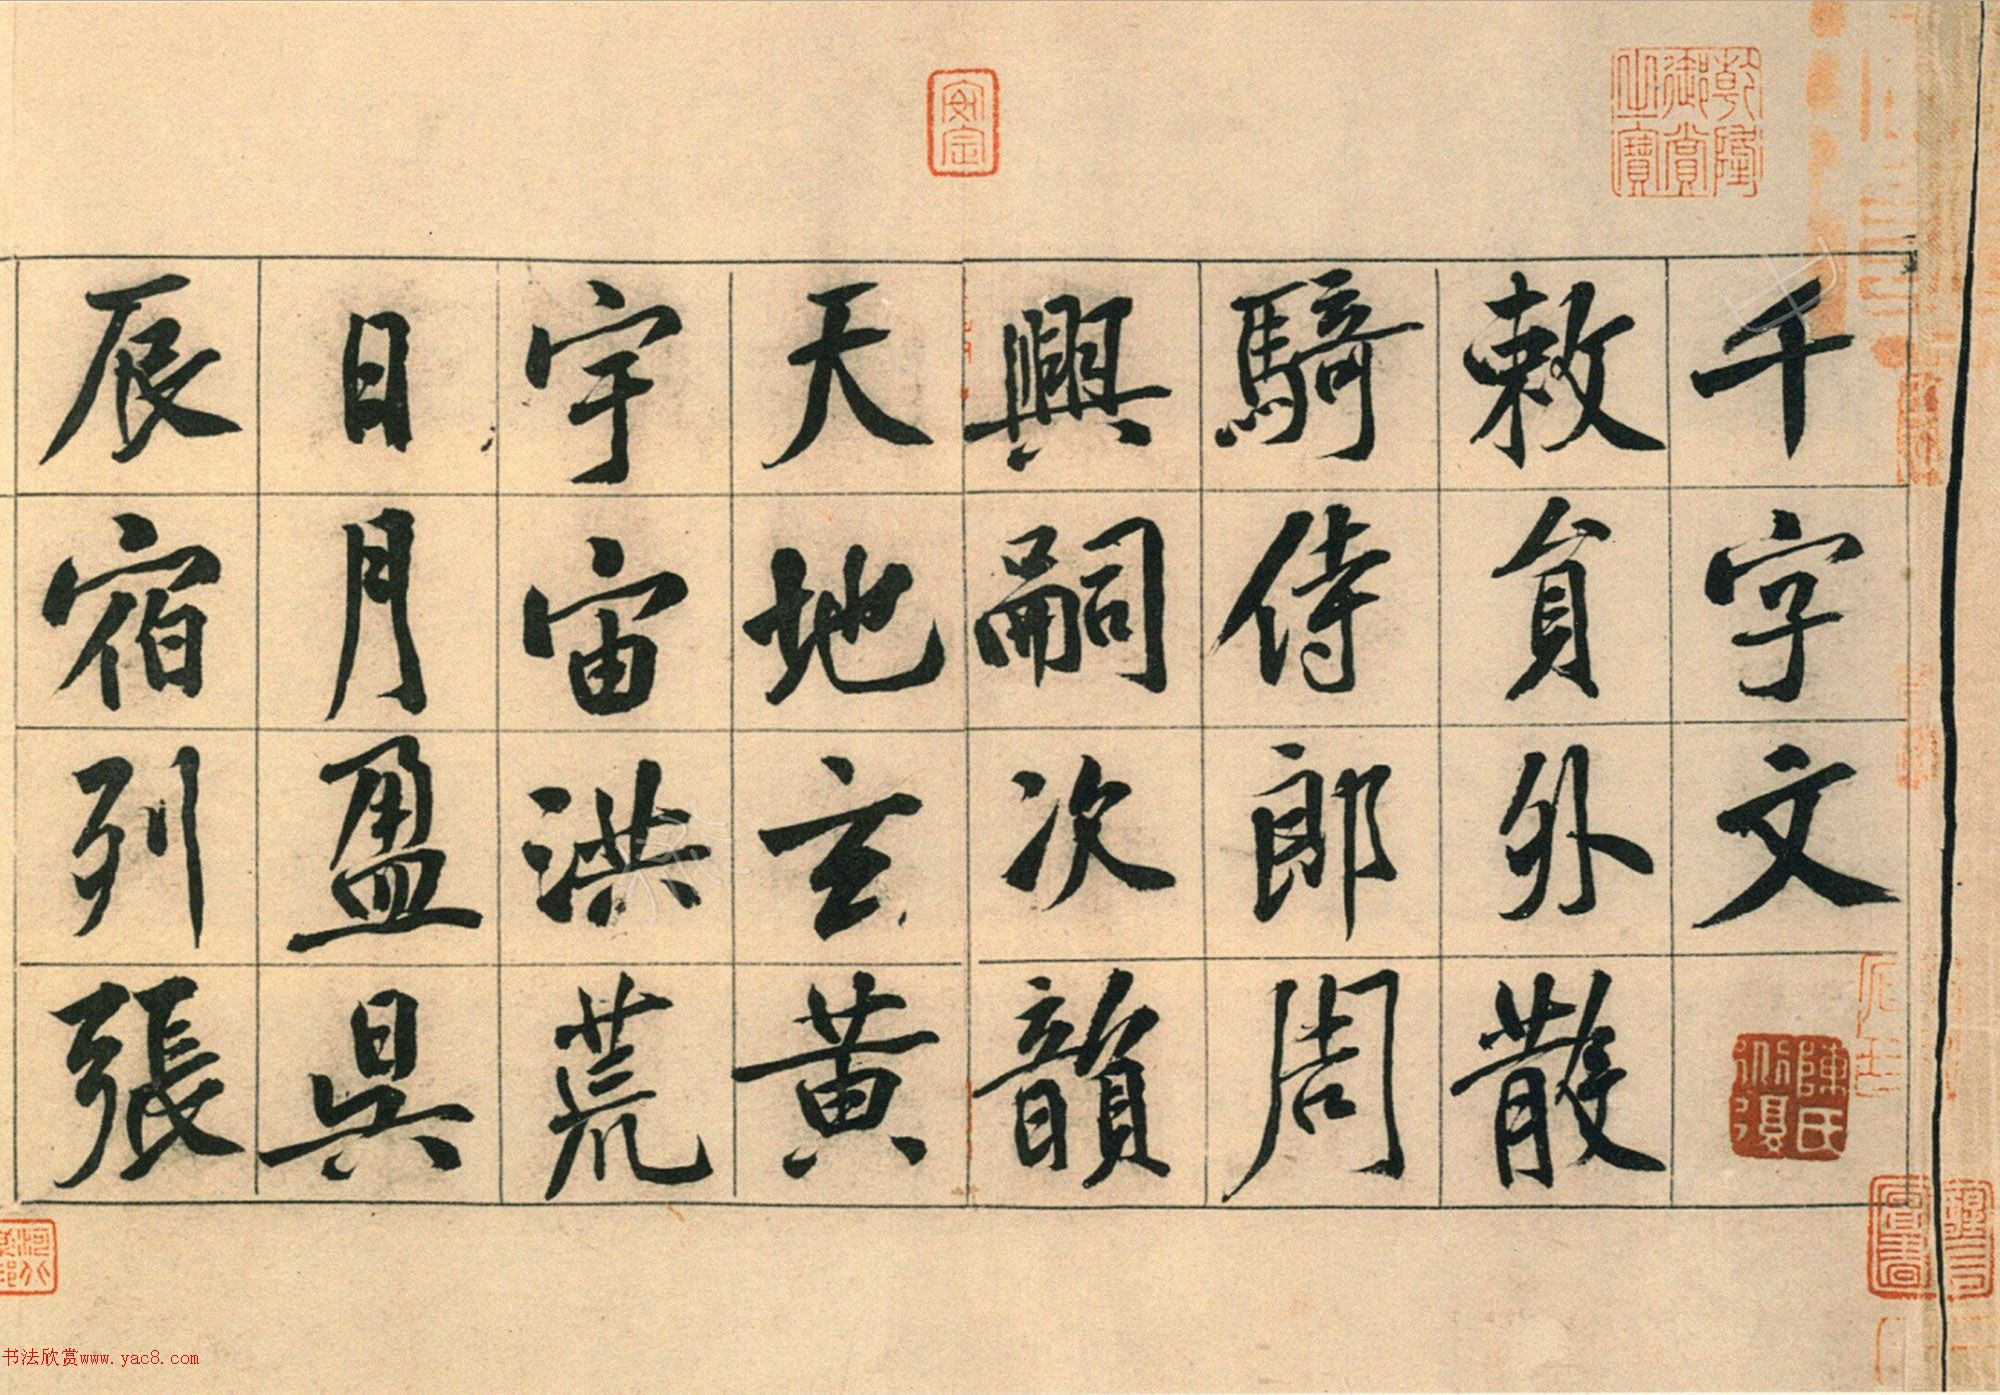 乾隆御賞之寶
安定
千字文
敕員外散
騎侍郎周
興嗣次韻
天地玄黃
宇宙洪荒
日月盈昃
辰宿列張
书法欣赏www.yac8.com